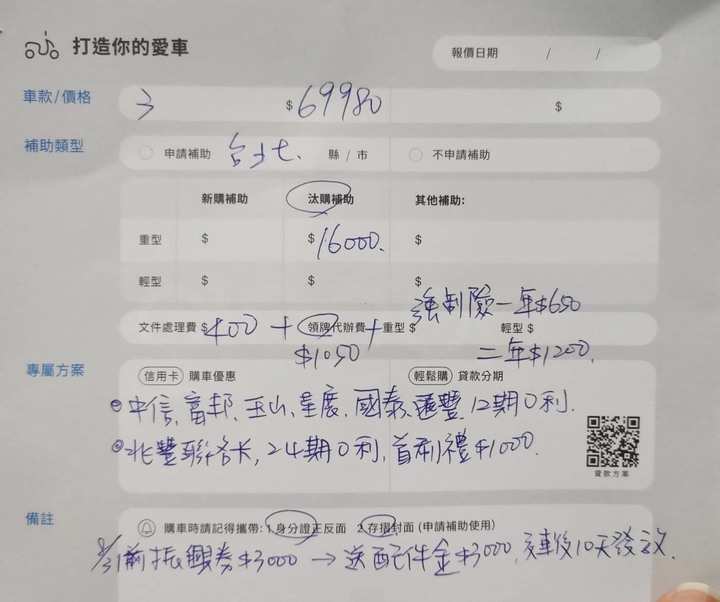 打造你的愛車
報價日期 / /
車款/價格 3 $69980 $
補助類型 申請補助 台北 縣/市 不申請補助
新購補助 汰購補助 其他補助:
重型 $ $16000. $
輕型 $ $ $
強制險一年$650
文件處理費 $400 + 領牌代辦費 + 重型 $ 輕型 $
$1050 二年$1200.
專屬方案 信用卡 購車優惠 輕鬆購 貸款分期
中信、富邦、玉山、星展、國泰、匯豐 12期0利.
聯名卡, 24期0利, 首刷禮$1000.
貸款方案
備註 購車時請記得攜帶: 1.身分證正反面 2.存摺封面 (申請補助使用)
8/31前振興券$3000 → 送配件金$3000, 交車後10天發放.